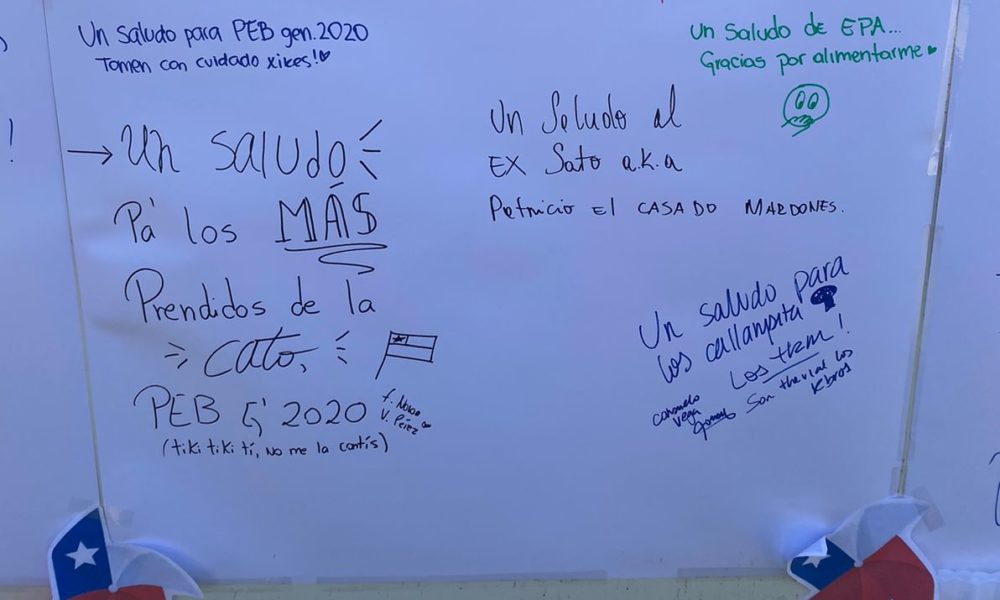 Un saludo para PEB gen.2020
Tomen con cuidado xikes!
→ Un saludo
Pa' los MÁS
Prendidos de la
Cato,
PEB G' 2020
V. Pérez
(tiki tiki tí, No me la contís)
Un Saludo de EPA...
Gracias por alimentarme
Un Saludo al
EX Sato a.k.a
Patricio El CASADO MARDONES.
Un saludo para
los callampita
Los tkm!
Son
los
kbros
Vega
!